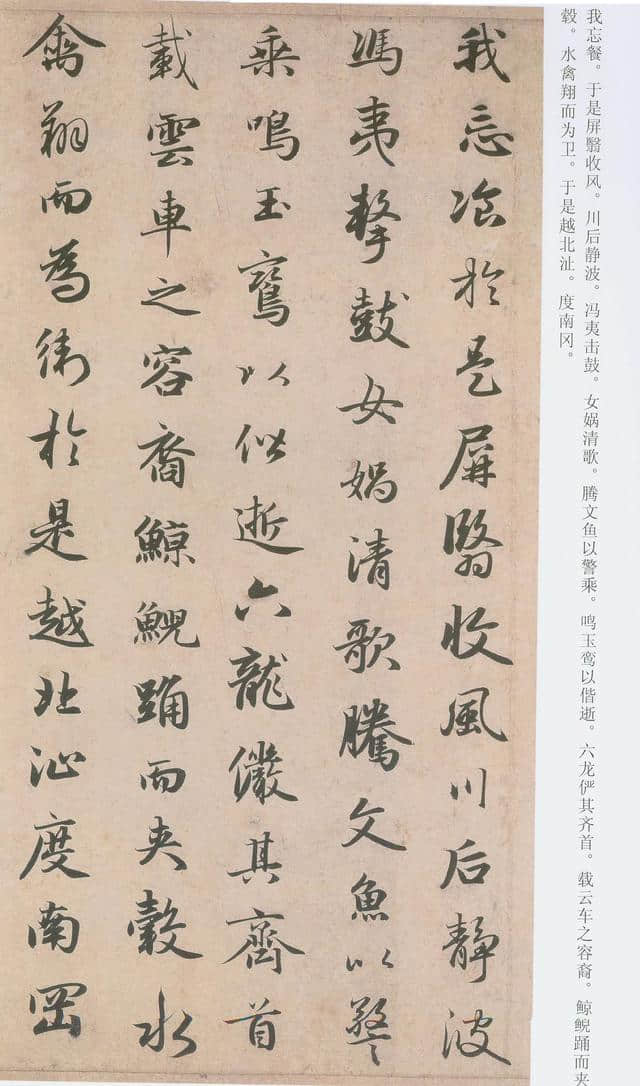 我忘飡於是屏翳收風川后静波
馮夷擊鼓女媧清歌騰文魚以警
乘鳴玉鸞以偕逝六龍儼其齊首
載雲車之容裔鯨鯢踊而夹轂水
禽翔而為衛於是越北沚度南岡
我忘餐。于是屏翳收风。川后静波。冯夷击鼓。女娲清歌。腾文鱼以警乘。鸣玉鸾以偕逝。六龙俨其齐首。载云车之容裔。鲸鲵踊而夹
毂。水禽翔而为卫。于是越北沚。度南冈。